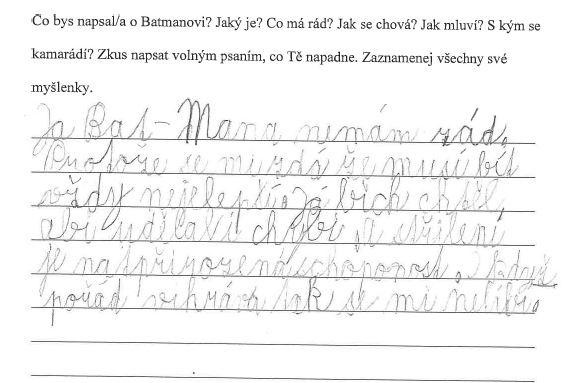 Co bys napsal/a o Batmanovi? Jaký je? Co má rád? Jak se chová? Jak mluví? S kým se
kamarádí? Zkus napsat volným psaním, co Tě napadne. Zaznamenej všechny své
myšlenky.
Ja Bat-Mana nemám rád.
Protože se mi zdá že musí bít
vždy nejlepší. Já bich chtěl,
abi udělal chybi a střílení
je nadpřirozená schoponost. I když
pořád vihrává tak se mi nelíbí.